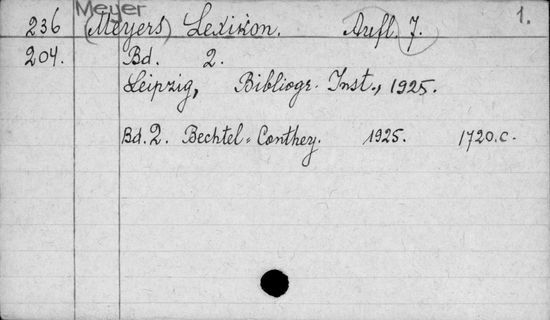 Meyer
1.
236 (Meyers) Lexikon. Aufl. 7.
204. Bd. 2.
Leipzig, Bibliogr. Inst., 1925.
Bd. 2. Bechtel=Conthey. 1925. 1720.c.